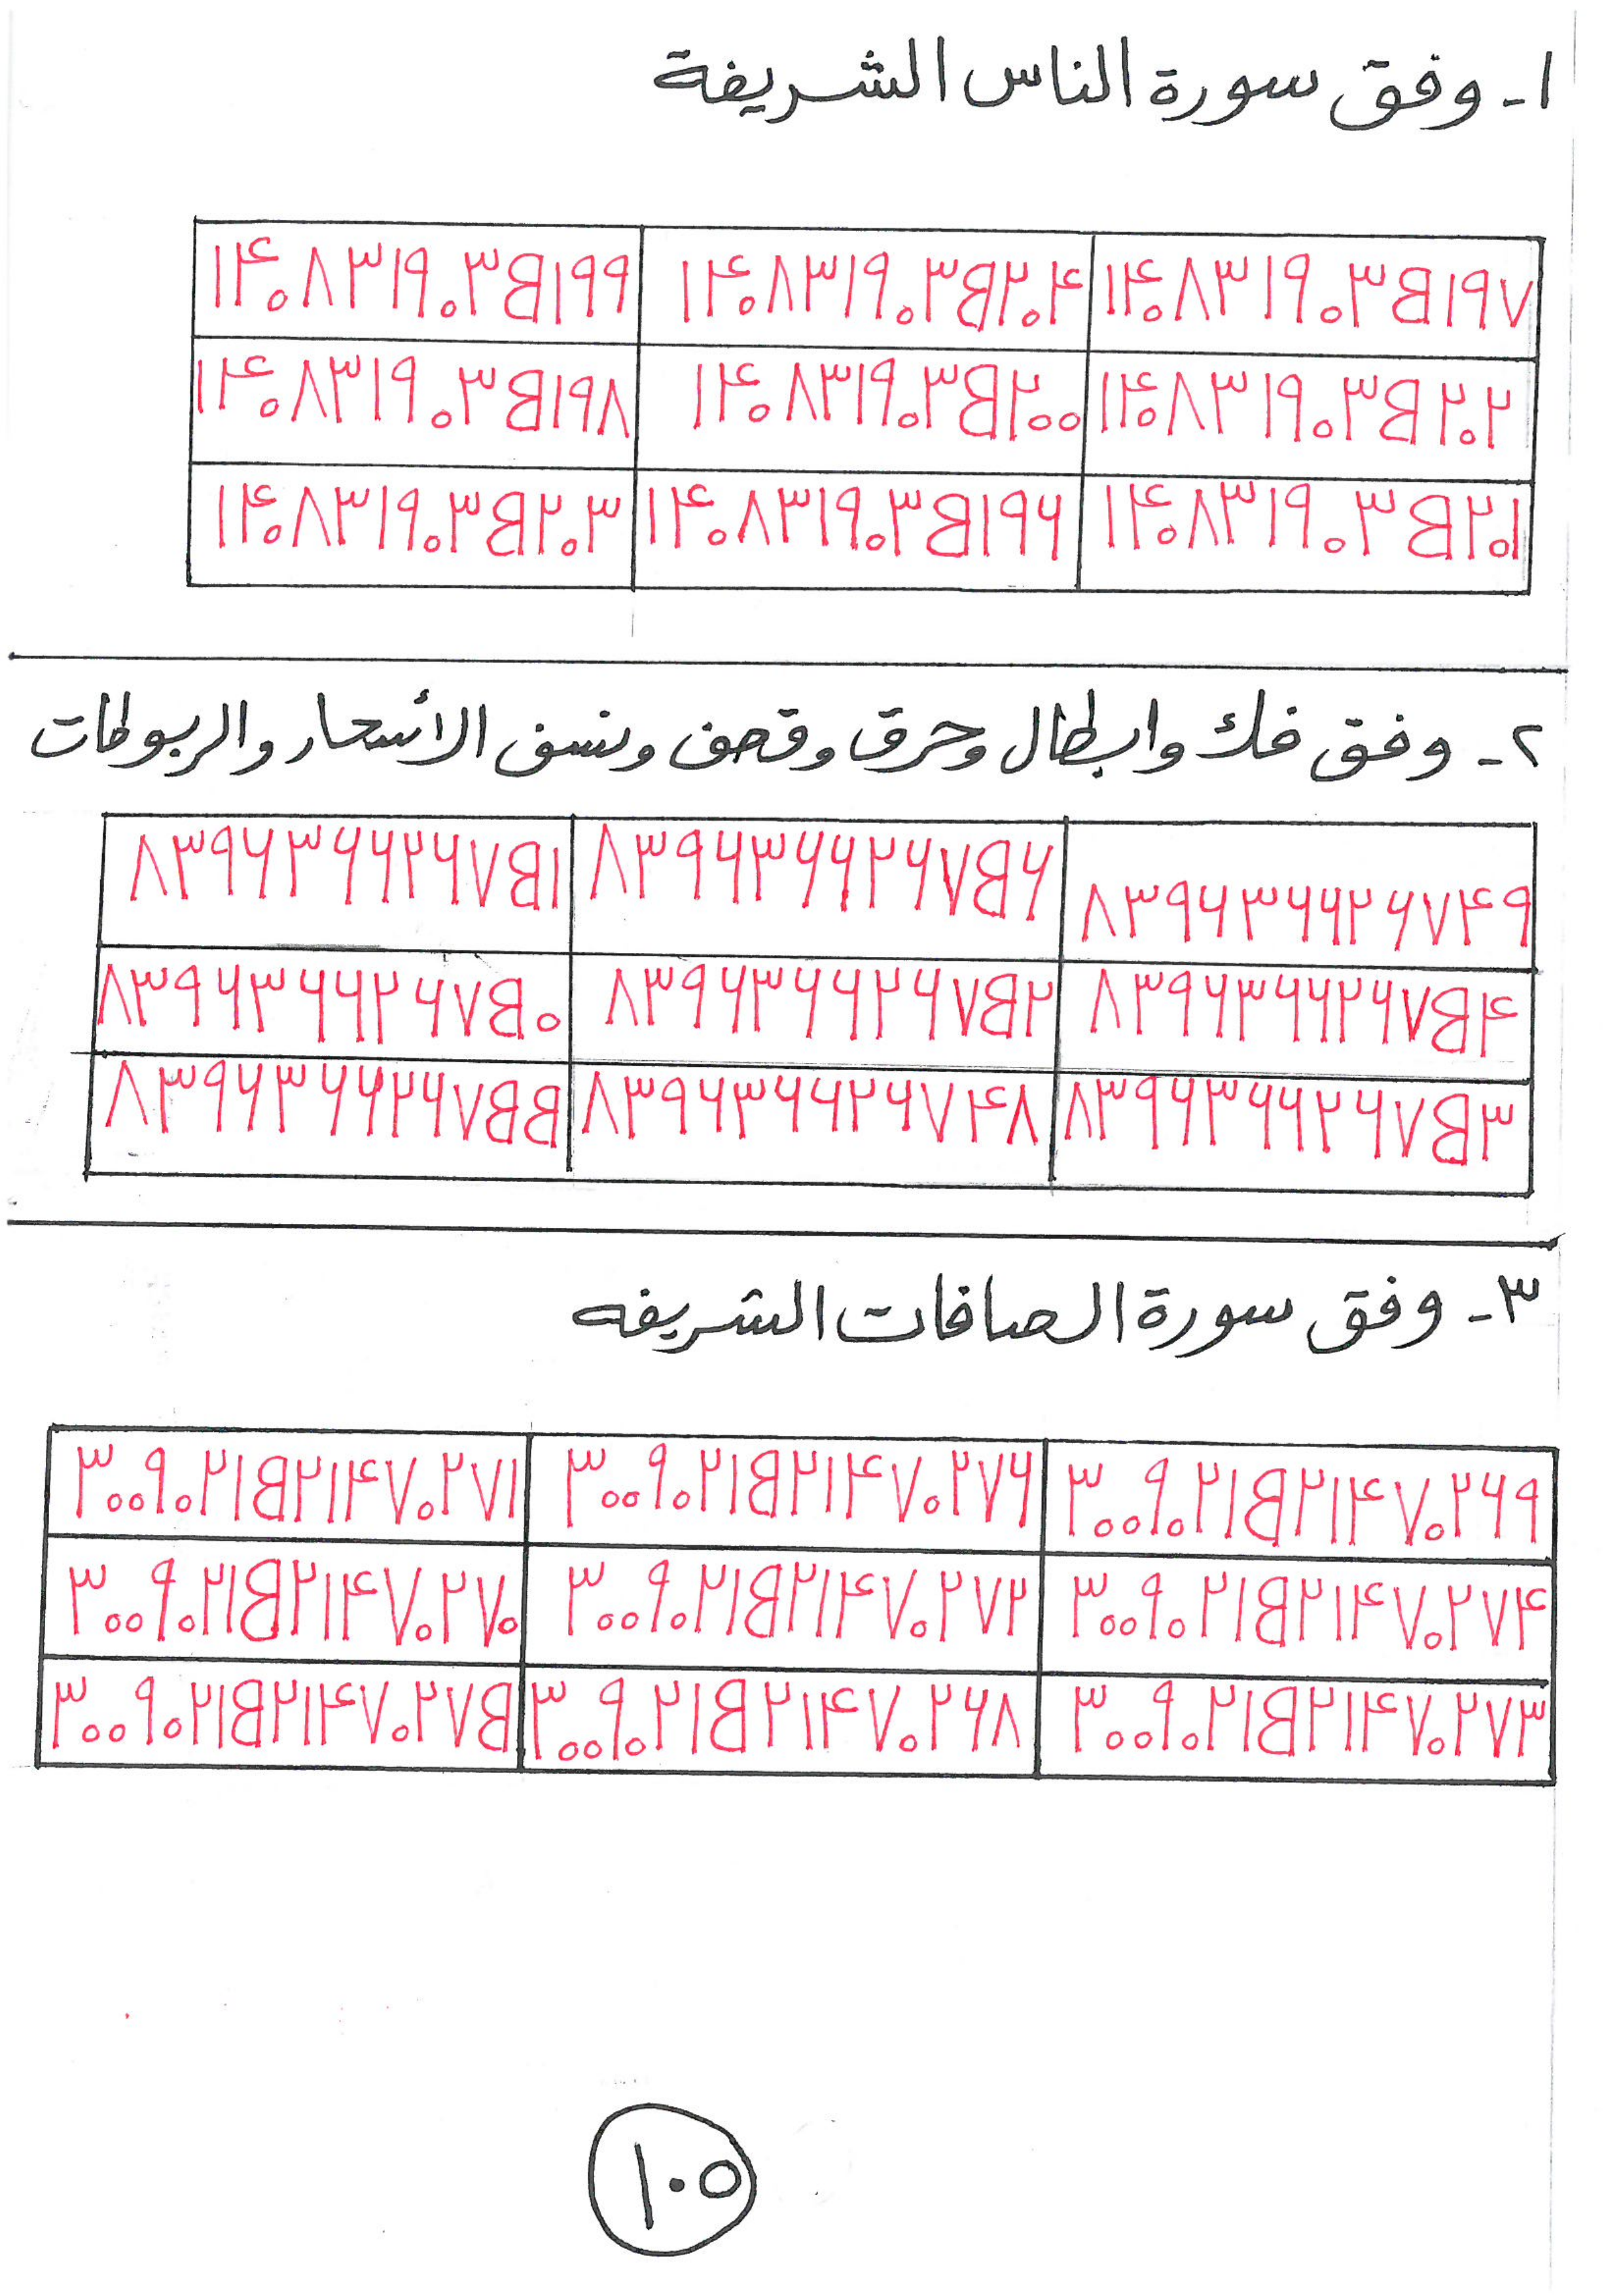 ١- وفق سورة الناس الشريفة
١٤٠٨٣١٩٠٣B١٩٧ ١٤٠٨٣١٩٠٣B٢٠٤ ١٤٠٨٣١٩٠٣B١٩٩
١٤٠٨٣١٩٠٣B٢٠٢ ١٤٠٨٣١٩٠٣B٢٠٠ ١٤٠٨٣١٩٠٣B١٩٨
١٤٠٨٣١٩٠٣B٢٠١ ١٤٠٨٣١٩٠٣B١٩٦ ١٤٠٨٣١٩٠٣B٢٠٣
٢- وفق فك وابطال وحرق وقصف ونسف الأسحار والربوطات
٨٣٩٦٣٦٦٢٦٧٤٩ ٨٣٩٦٣٦٦٢٦٧B٦ ٨٣٩٦٣٦٦٢٦٧B١
٨٣٩٦٣٦٦٢٦٧B٤ ٨٣٩٦٣٦٦٢٦٧B٢ ٨٣٩٦٣٦٦٢٦٧B٠
٨٣٩٦٣٦٦٢٦٧B٣ ٨٣٩٦٣٦٦٢٦٧٤٨ ٨٣٩٦٣٦٦٢٦٧BB
٣- وفق سورة الصافات الشريفه
٣٠٠٩٠٢١B٢١٤٧٠٢٦٩ ٣٠٠٩٠٢١B٢١٤٧٠٢٧٦ ٣٠٠٩٠٢١B٢١٤٧٠٢٧١
٣٠٠٩٠٢١B٢١٤٧٠٢٧٤ ٣٠٠٩٠٢١B٢١٤٧٠٢٧٢ ٣٠٠٩٠٢١B٢١٤٧٠٢٧٠
٣٠٠٩٠٢١B٢١٤٧٠٢٧٣ ٣٠٠٩٠٢١B٢١٤٧٠٢٦٨ ٣٠٠٩٠٢١B٢١٤٧٠٢٧B
١٠٥